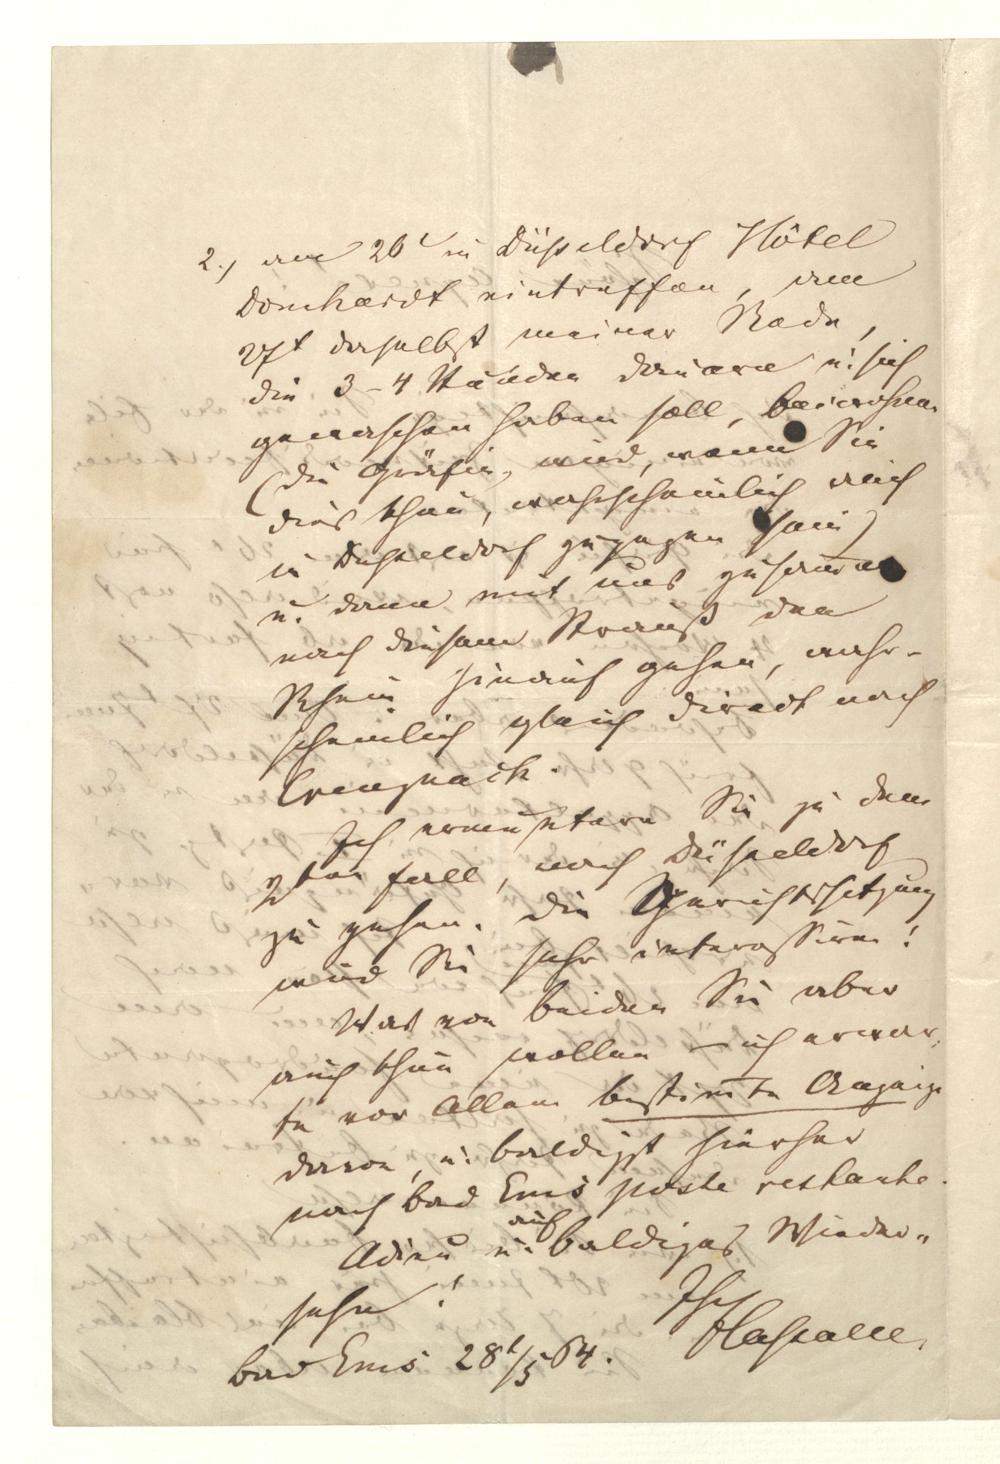 2.) am 26t in Düsseldorf Hôtel
Domhardt eintreffen, am
27t daselbst meiner Rede,
die 3–4 Stunden dauern u. sich
gewaschen haben soll, beiwohnen
(die Gräfin, wird, wenn Sie
dies thun, wahrscheinlich auch
in Düsseldorf zugegen sein)
u. dann mit uns zusammen
nach diesem Strauß den
Rhein hinauf gehen, wahr-
scheinlich gleich direct nach
Creuznach.
Ich ermuntere Sie zu dem
2ten Fall, nach Düsseldorf
zu gehen. Die Gerichtssitzung
wird Sie sehr interessiren!
Was von beiden Sie aber
auch thun wollen – ich erwar-
te vor Allem bestimte Anzeige
davon, u. baldigst hierher
nach Bad Ems poste restante.
Adieu u. auf baldiges Wieder-
sehn!
Ihr
FLassalle.
Bad Ems 28t/5 64.